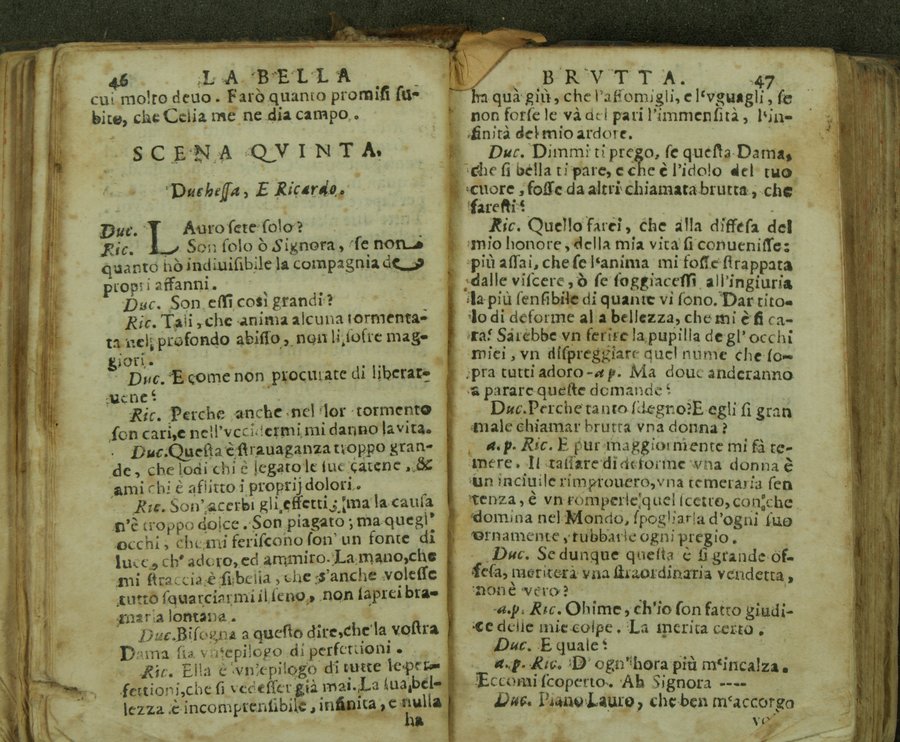 46 LA BELLA
cui molto deuo. Farò quanto promisi su-
bito, che Celia me ne dia campo.
SCENA QVINTA.
Duchessa, E Ricardo.
Duc. LAuro sete solo?
Ric. Son solo ò Signora, se non
quanto hò indiuisibile la compagnia de
propri affanni.
Duc. Son essi così grandi?
Ric. Tali, che anima alcuna tormenta-
ta nel profondo abisso, non li sofre mag-
giori.
Duc. E come non procurate di liberar-
uene?
Ric. Perche anche nel lor tormento
son cari, e nell'vccidermi mi danno la vita.
Duc. Questa è strauaganza troppo gran-
de, che lodi chi è legato le sue catene, &
ami chi è aflitto i proprij dolori.
Ric. Son' acerbi gli effetti; ma la causa
n'è troppo dolce. Son piagato; ma quegl'
occhi, che mi feriscono son' un fonte di
luce, ch' adoro, ed ammiro. La mano, che
mi straccia è si bella, che s'anche volesse
tutto squarciarmi il seno, non saprei bra-
marla lontana.
Duc. Bisogna a questo dire, che la vostra
Dama sia vn'epilogo di perfettioni.
Ric. Ella è vn'epilogo di tutte le per-
fettioni, che si vedesser già mai. La sua bel-
lezza è incomprensibile, infinita, e nulla
ha
BRVTTA. 47
ha quà giù, che l'assomigli, e l'vguagli, se
non forse le và del pari l'immensità, l'in-
finità del mio ardore.
Duc. Dimmi ti prego, se questa Dama,
che si bella ti pare, e che è l'idolo del tuo
cuore, fosse da altri chiamata brutta, che
faresti?
Ric. Quello farei, che alla diffesa del
mio honore, della mia vita si conuenisse:
più assai, che se l'anima mi fosse strappata
dalle viscere, ò se soggiacessi all'ingiuria
la più sensibile di quante vi sono. Dar tito-
lo di deforme al a bellezza, che mi è si ca-
ra! Sarebbe vn ferire la pupilla de gl' occhi
miei, vn dispreggiare quel nume che so-
pra tutti adoro -a p. Ma doue anderanno
a parare queste domande?
Duc. Perche tanto sdegno? E egli si gran
male chiamar brutta vna donna?
a.p. Ric. E pur maggiormente mi fà te-
mere. Il tassare di deforme vna donna è
un inciuile rimprouero, vna temeraria sen
tenza, è vn romperle quel scetto, con che
domina nel Mondo, spogliarla d'ogni suo
ornamente, rubbarle ogni pregio.
Duc. Se dunque questa è si grande of-
fesa, meriterà vna straordinaria vendetta,
non è vero?
a.p. Ric. Ohime, ch'io son fatto giudi-
ce delle mie colpe. La merita certo.
Duc. E quale?
a.p. Ric. D' ogn'hora più m'incalza.
Eccomi scoperto. Ah Signora ----
Duc. Piano Lauro, che ben m'accorgo